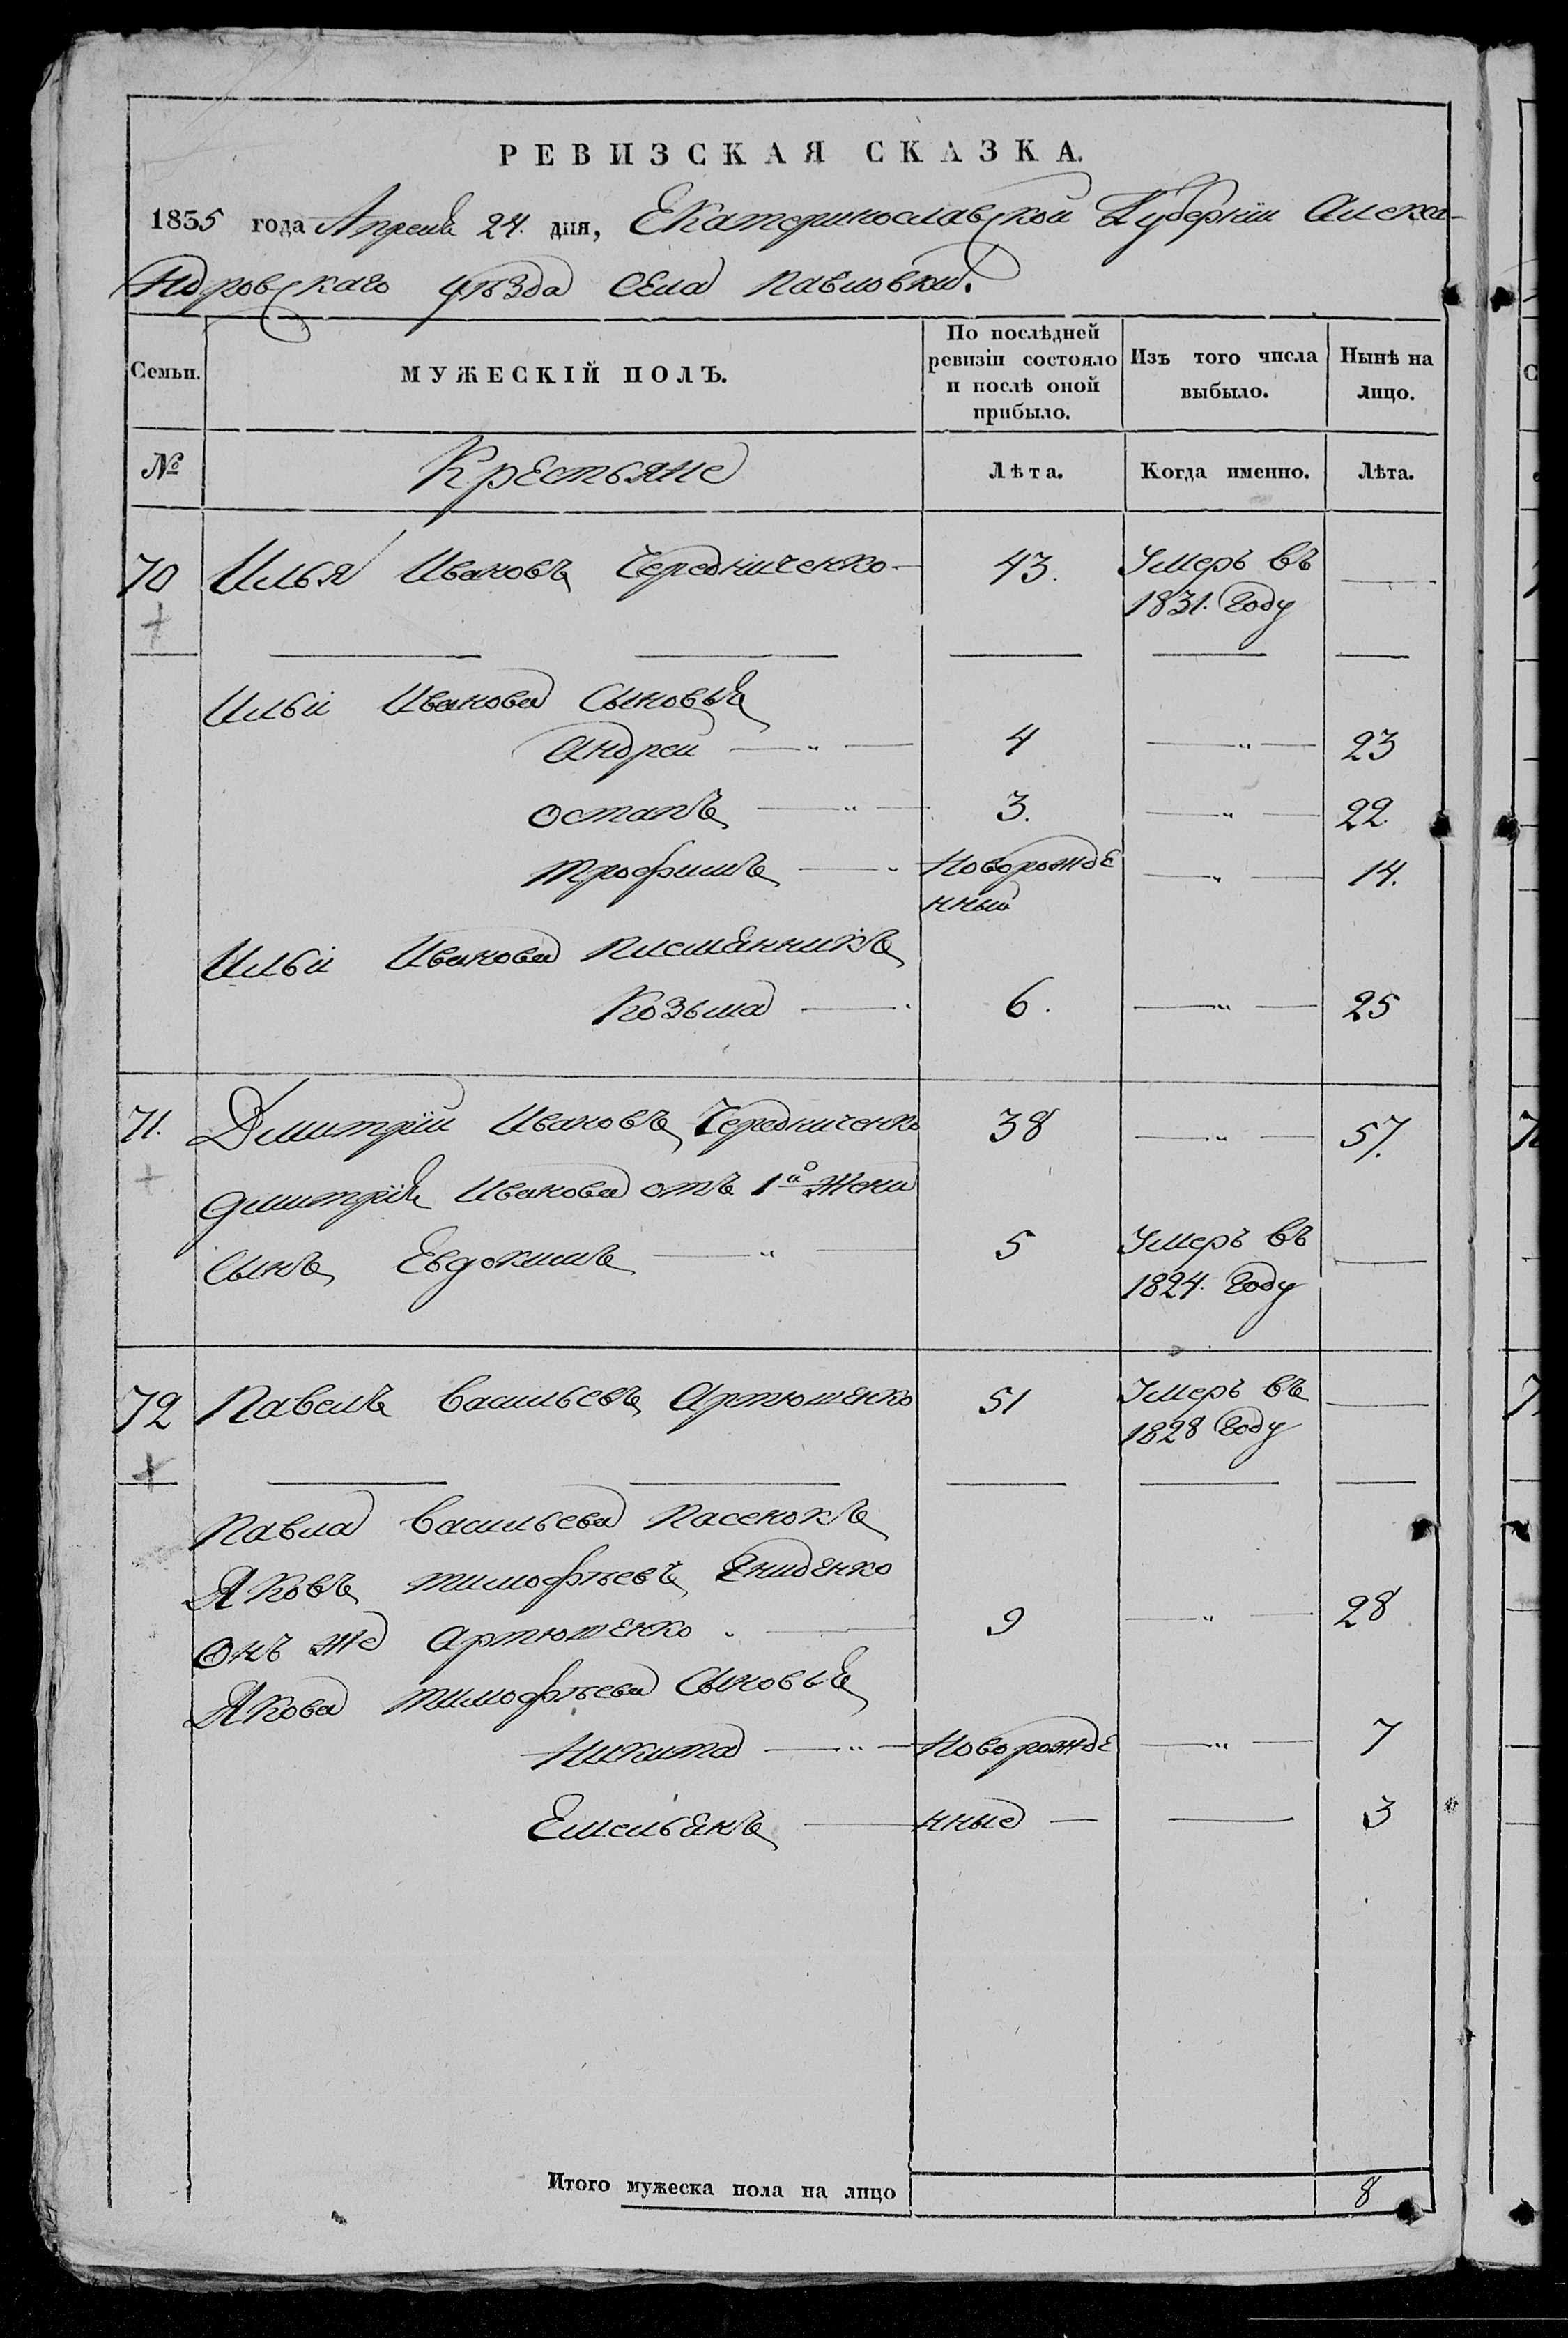 РЕВИЗСКАЯ СКАЗКА.
1835 года Апреля 24. дня, Екатеринославской Губерніи Алекса-
ндровскаго уѣзда Села Павловки.
Семьи. МУЖЕСКІЙ ПОЛЪ. По послѣдней ревизіи состояло и послѣ оной прибыло. Изъ того числа выбыло. Нынѣ на лицо.
№ Крестьяне Лѣта. Когда именно. Лѣта.
70 Илья Ивановъ Чередниченко 43. Умеръ въ
1831. Году
Ильи Иванова Сыновья
Андрей 4 23
Остапъ 3. 22
Трофимъ Новорожде 14.
нный
Ильи Иванова племянникъ
Козьма 6. 25
71. Дмитрій Ивановъ Чередниченко 38 57.
Дмитрія Иванова отъ 1й жены
Сынъ Евдокимъ 5 Умеръ въ
1824. Году
72 Павелъ Васильевъ Артюшенко 51 Умеръ въ
1828 Году
Павла Васильева Пасенокъ
Яковъ Тимофѣевъ
Онъ же Артюшенко 9 28
Якова Тимофѣева Сыновья
Никита Новорожде 7
Емельянъ нные 3
Итого мужеска пола на лицо 8